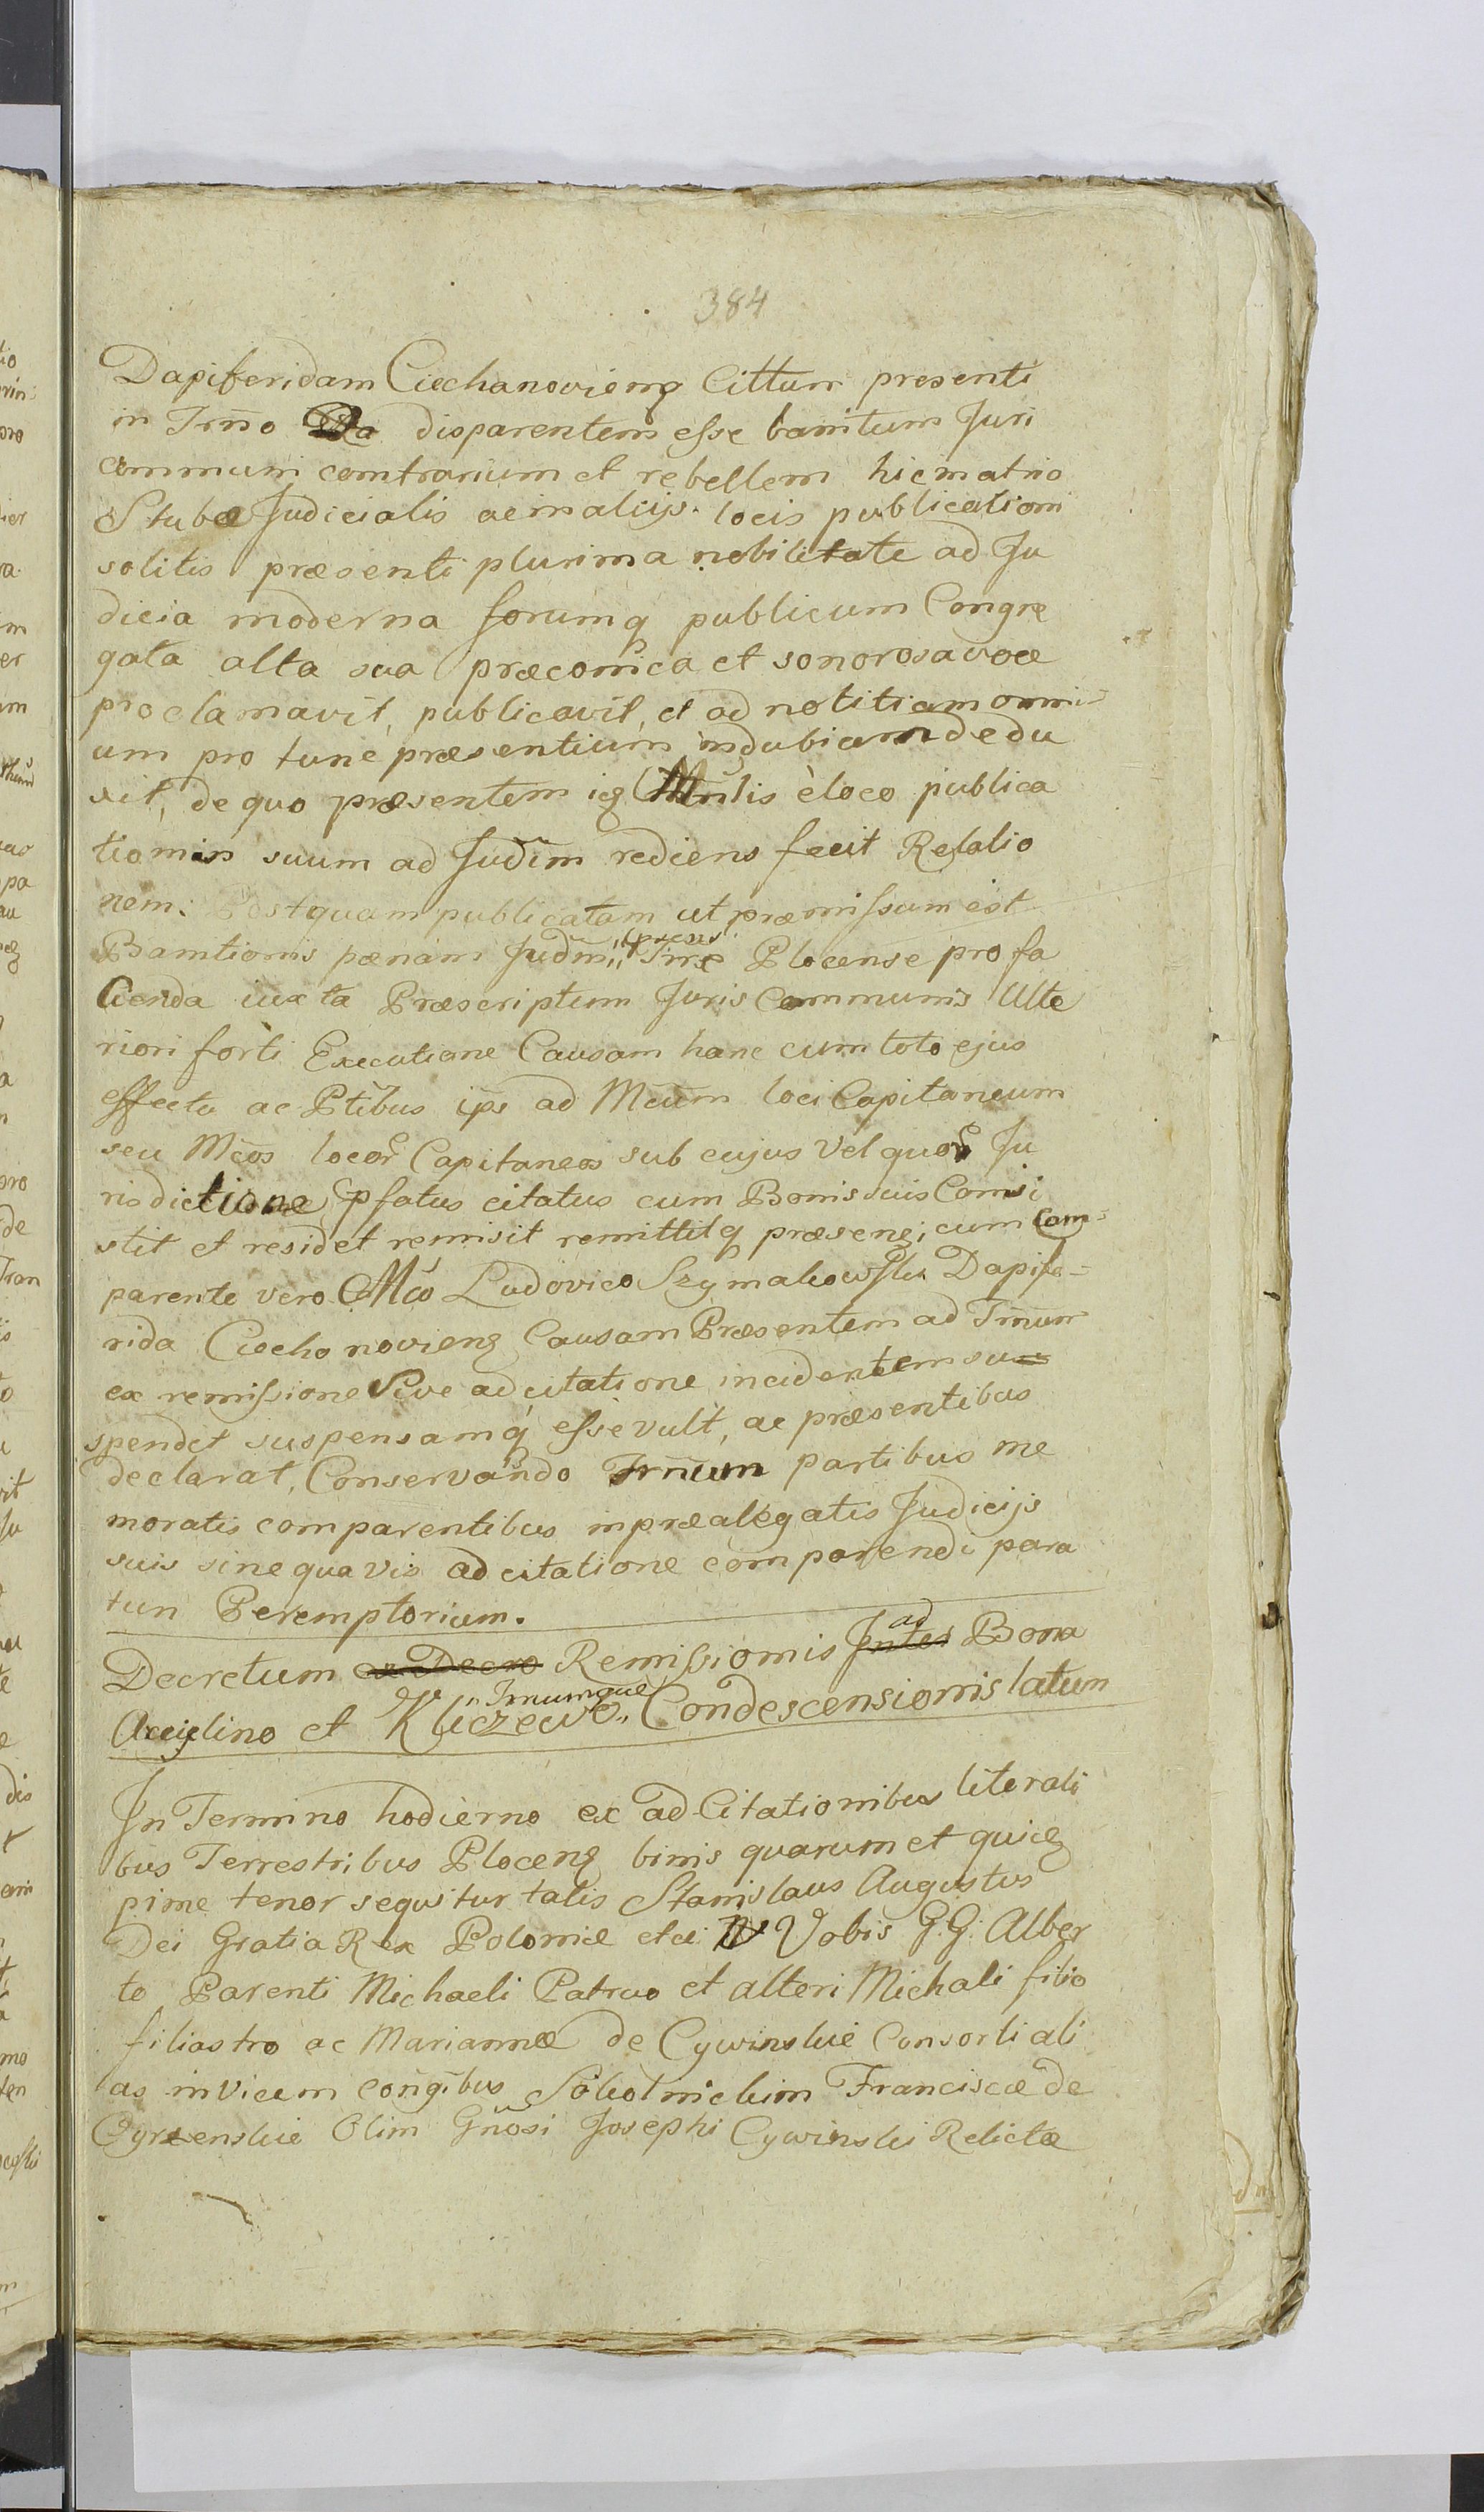 384
Dapiferidam Ciechanovieng Cittum presenti
in Trno disparentem esse banitum Juri
communi contrarium et rebellem hic in atrio
Stubæ Judicialis ac in alijs locis publicationi
solitis præsenti plurima nobilitate ad Ju
dicia moderna forumq publicum Congre
gata alta sua præconica et sonorosa voce
proclamavit, publicavit, et ad notitiam omni=
um pro tunc præsentium indubiam dedu
xit, de quo præsentem ig Mnlis è loco publica
tionis suum ad Judim rediens fecit Relatio
nem. Postquam publicatam ut præmissum est
Banitionis pænam Judm Trre Plocense pro fa
cienda iuxta Præscriptum Juris Communis Ulte
riori forti Executione Causam hanc cum toto ejus
effectu ac Ptibus ips ad Mcum loci Capitaneum
seu Mcos locor Capitaneos sub cujus vel quor Ju
risdictione pfatus citatus cum Bonis suis Consi
stit et residet remisit remittitq præseng; cum Com=
parente vero Mco Ludovico Szymakowski Dapife=
rida Ciechanovieng Causam Præsentem ad Trnum
ex remissione Sive adcitatione incidentem su=
spendet suspensamq esse vult, ac præsentibus
declarat, Conservando Trnum partibus me
moratis comparentibus in præalegatis Judicijs
suis sine quavis adcitatione comparendi para
tun Peremptorium.
Decretum ex Decro Remissionis Inter ad Bona
et Kliczewo Trnumque Condescensionis latum
In Termino hodierno ex ad Citationibus literali
bus Terrestribus Ploceng binis quarum et quidg
pime tenor sequitur talis Stanislaus Augustus
Dei Gratia Rex Poloniæ etce Vobis G.G. Alber
to Parenti Michaeli Patruo et alteri Michali filio
filiastro ac Mariannæ de Cywinskie Consorti ali
as invicem congibus Sokolnickim Franciscæ de
Olim Gnosi Josephi Cywinski Relictæ